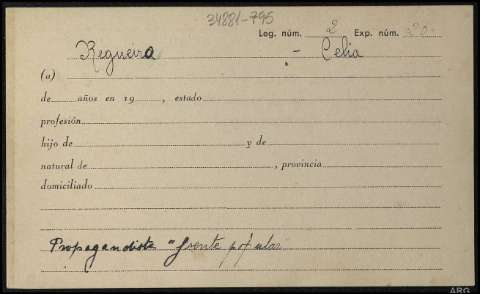 34881-795
Leg. núm. 2 Exp. núm.
Regueiro - Celia
(a)
de años en 19 , estado
profesión
hijo de y de
natural de , provincia
domiciliado
Propagandista "frente popular
ARG